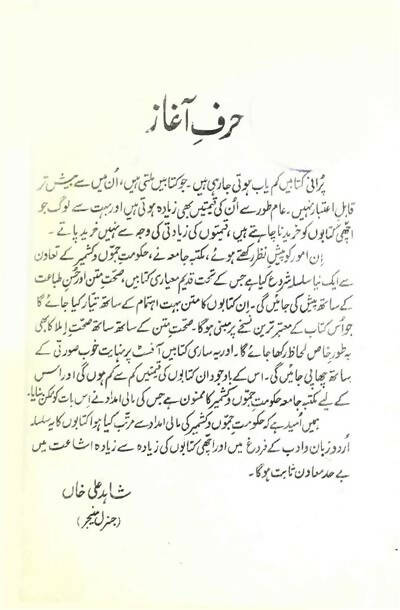 حرفِ آغاز
پُرانی کتابیں کم یاب ہوتی جارہی ہیں۔ جو کتابیں ملتی ہیں، اُن میں سے بیش تر
قابلِ اعتبار نہیں۔ عام طور سے اُن کی قیمتیں بھی زیادہ ہوتی ہیں اور بہت سے لوگ جو
اچھی کتابوں کو خریدنا چاہتے ہیں، قیمتوں کی زیادتی کی وجہ سے نہیں خرید پاتے۔
اِن امور کو پیشِ نظر رکھتے ہوئے، مکتبہ جامعہ نے، حکومتِ جموّں و کشمیر کے تعاون
سے ایک نیا سلسلہ شروع کیا ہے جس کے تحت قدیم معیاری کتابیں، صحتِ متن اور حُسنِ طباعت
کے ساتھ پیش کی جائیں گی۔ اِن کتابوں کا متن بہت اہتمام کے ساتھ تیار کیا جائے گا
جو اُس کتاب کے معتبر ترین نسخے پر مبنی ہوگا۔ صحتِ متن کے ساتھ ساتھ صحتِ اِملا کا بھی
بہ طورِ خاص لحاظ رکھا جائے گا۔ اور یہ ساری کتابیں آفسٹ پر نہایت خوب صورتی کے
ساتھ چھاپی جائیں گی۔ اس کے باوجود اِن کتابوں کی قیمتیں کم سے کم ہوں گی اور اس
کے لیے مکتبہ جامعہ حکومتِ جموّں و کشمیر کا ممنون ہے جس کی مالی امداد نے اِس بات کو ممکن بنایا۔
ہمیں اُمید ہے کہ حکومتِ جموّں و کشمیر کی مالی امداد سے مرتّب کیا ہوا کتابوں کا یہ سلسلہ
اُردو زبان و ادب کے فروغ میں اور اچھی کتابوں کی زیادہ سے زیادہ اشاعت میں
بے حد معاون ثابت ہوگا۔
شاہد علی خاں
(جنرل منیجر)